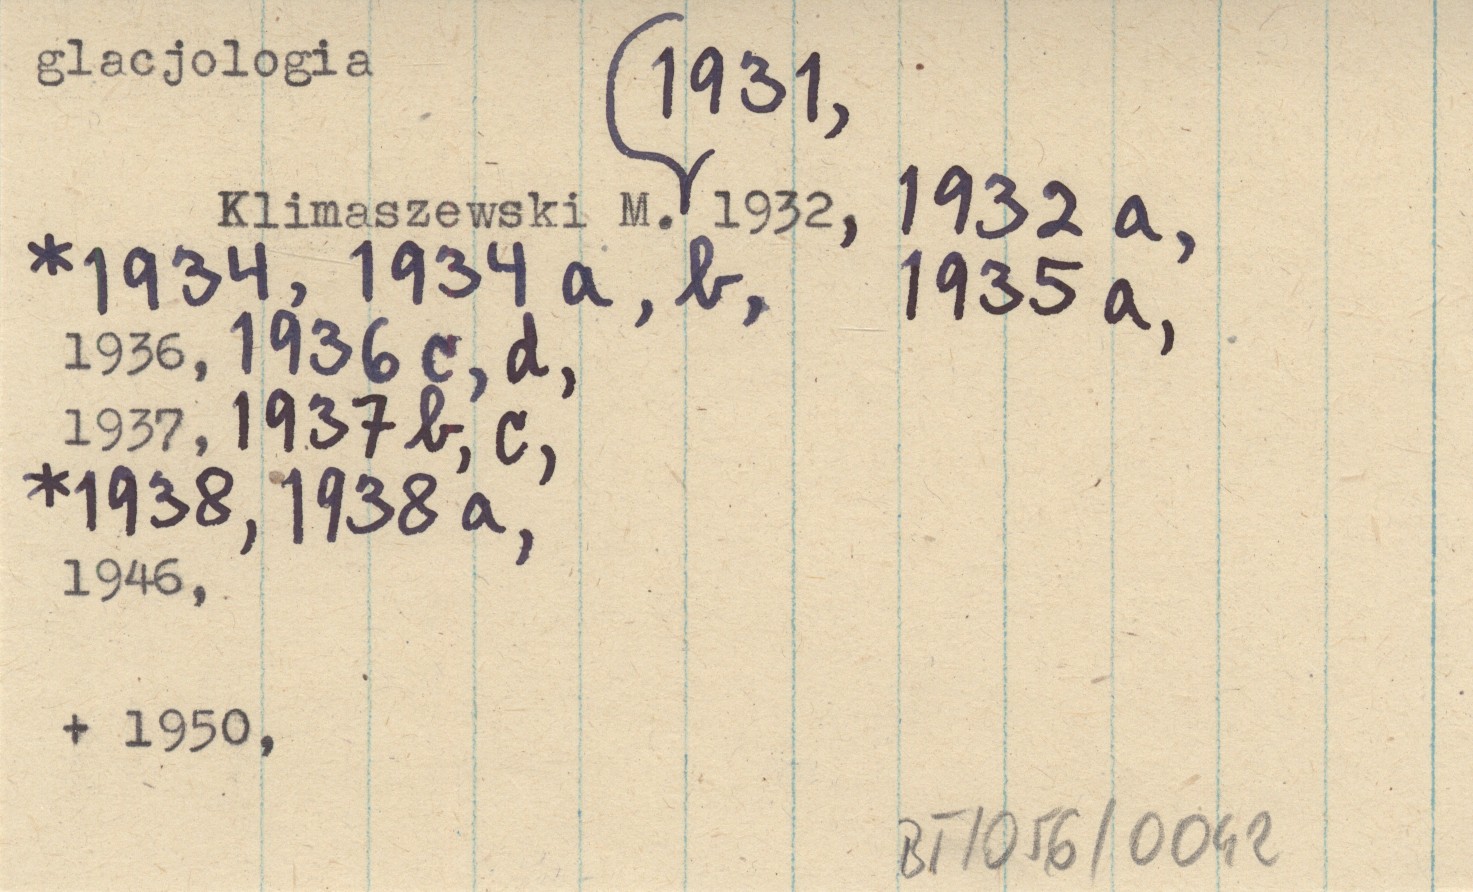 glacjologia
1931,
Klimaszewski M. 1932, 1932 a,
*1934, 1934 a, b, 1935 a,
1936, 1936 c, d,
1937, 1937 b, c,
*1938, 1938 a,
1946,
+ 1950,
BT/056/0042